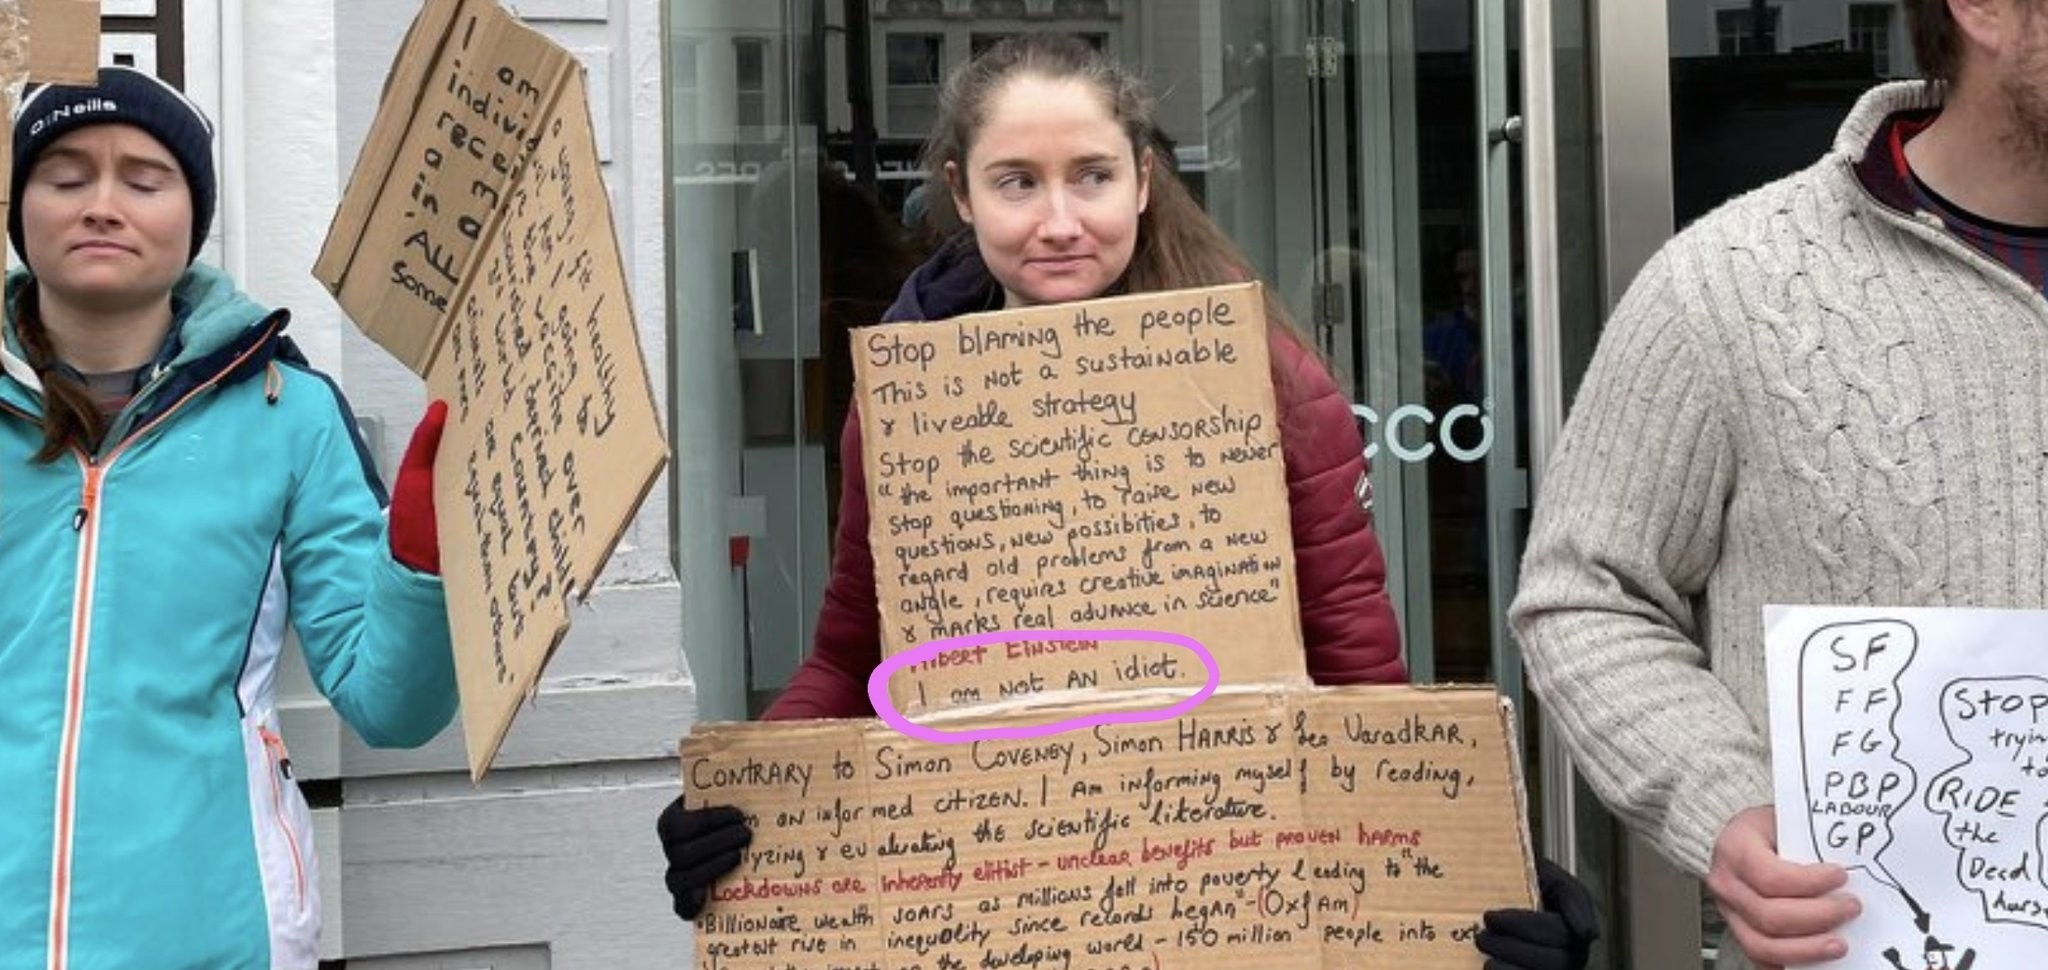 O'Neills
I am
individ
recei
a 3r
in a
AE
some
a young, fit healthy
CCO
Stop blaming the people
This is not a sustainable
& liveable strategy
Stop the scientific censorship
"the important thing is to never
stop questioning, to raise new
questions, new possibities, to
regard old problems from a new
angle, requires creative imagination
& marks real advance in science"
Albert Einstein
I am not an idiot.
Contrary to Simon Coveney, Simon Harris & Leo Varadkar,
an informed citizen. I am informing myself by reading,
lyzing & evaluating the scientific literature.
Lockdowns are inherently elitist - unclear benefits but proven harms
• Billionaire wealth soars as millions fall into poverty leading to "the
greatest rise in inequality since records began" - (Oxfam)
the developing world - 150 million people into ext
SF
FF
FG
PBP
LABOUR
GP
STOP
tryin
to
RIDE
the
Dead
horse